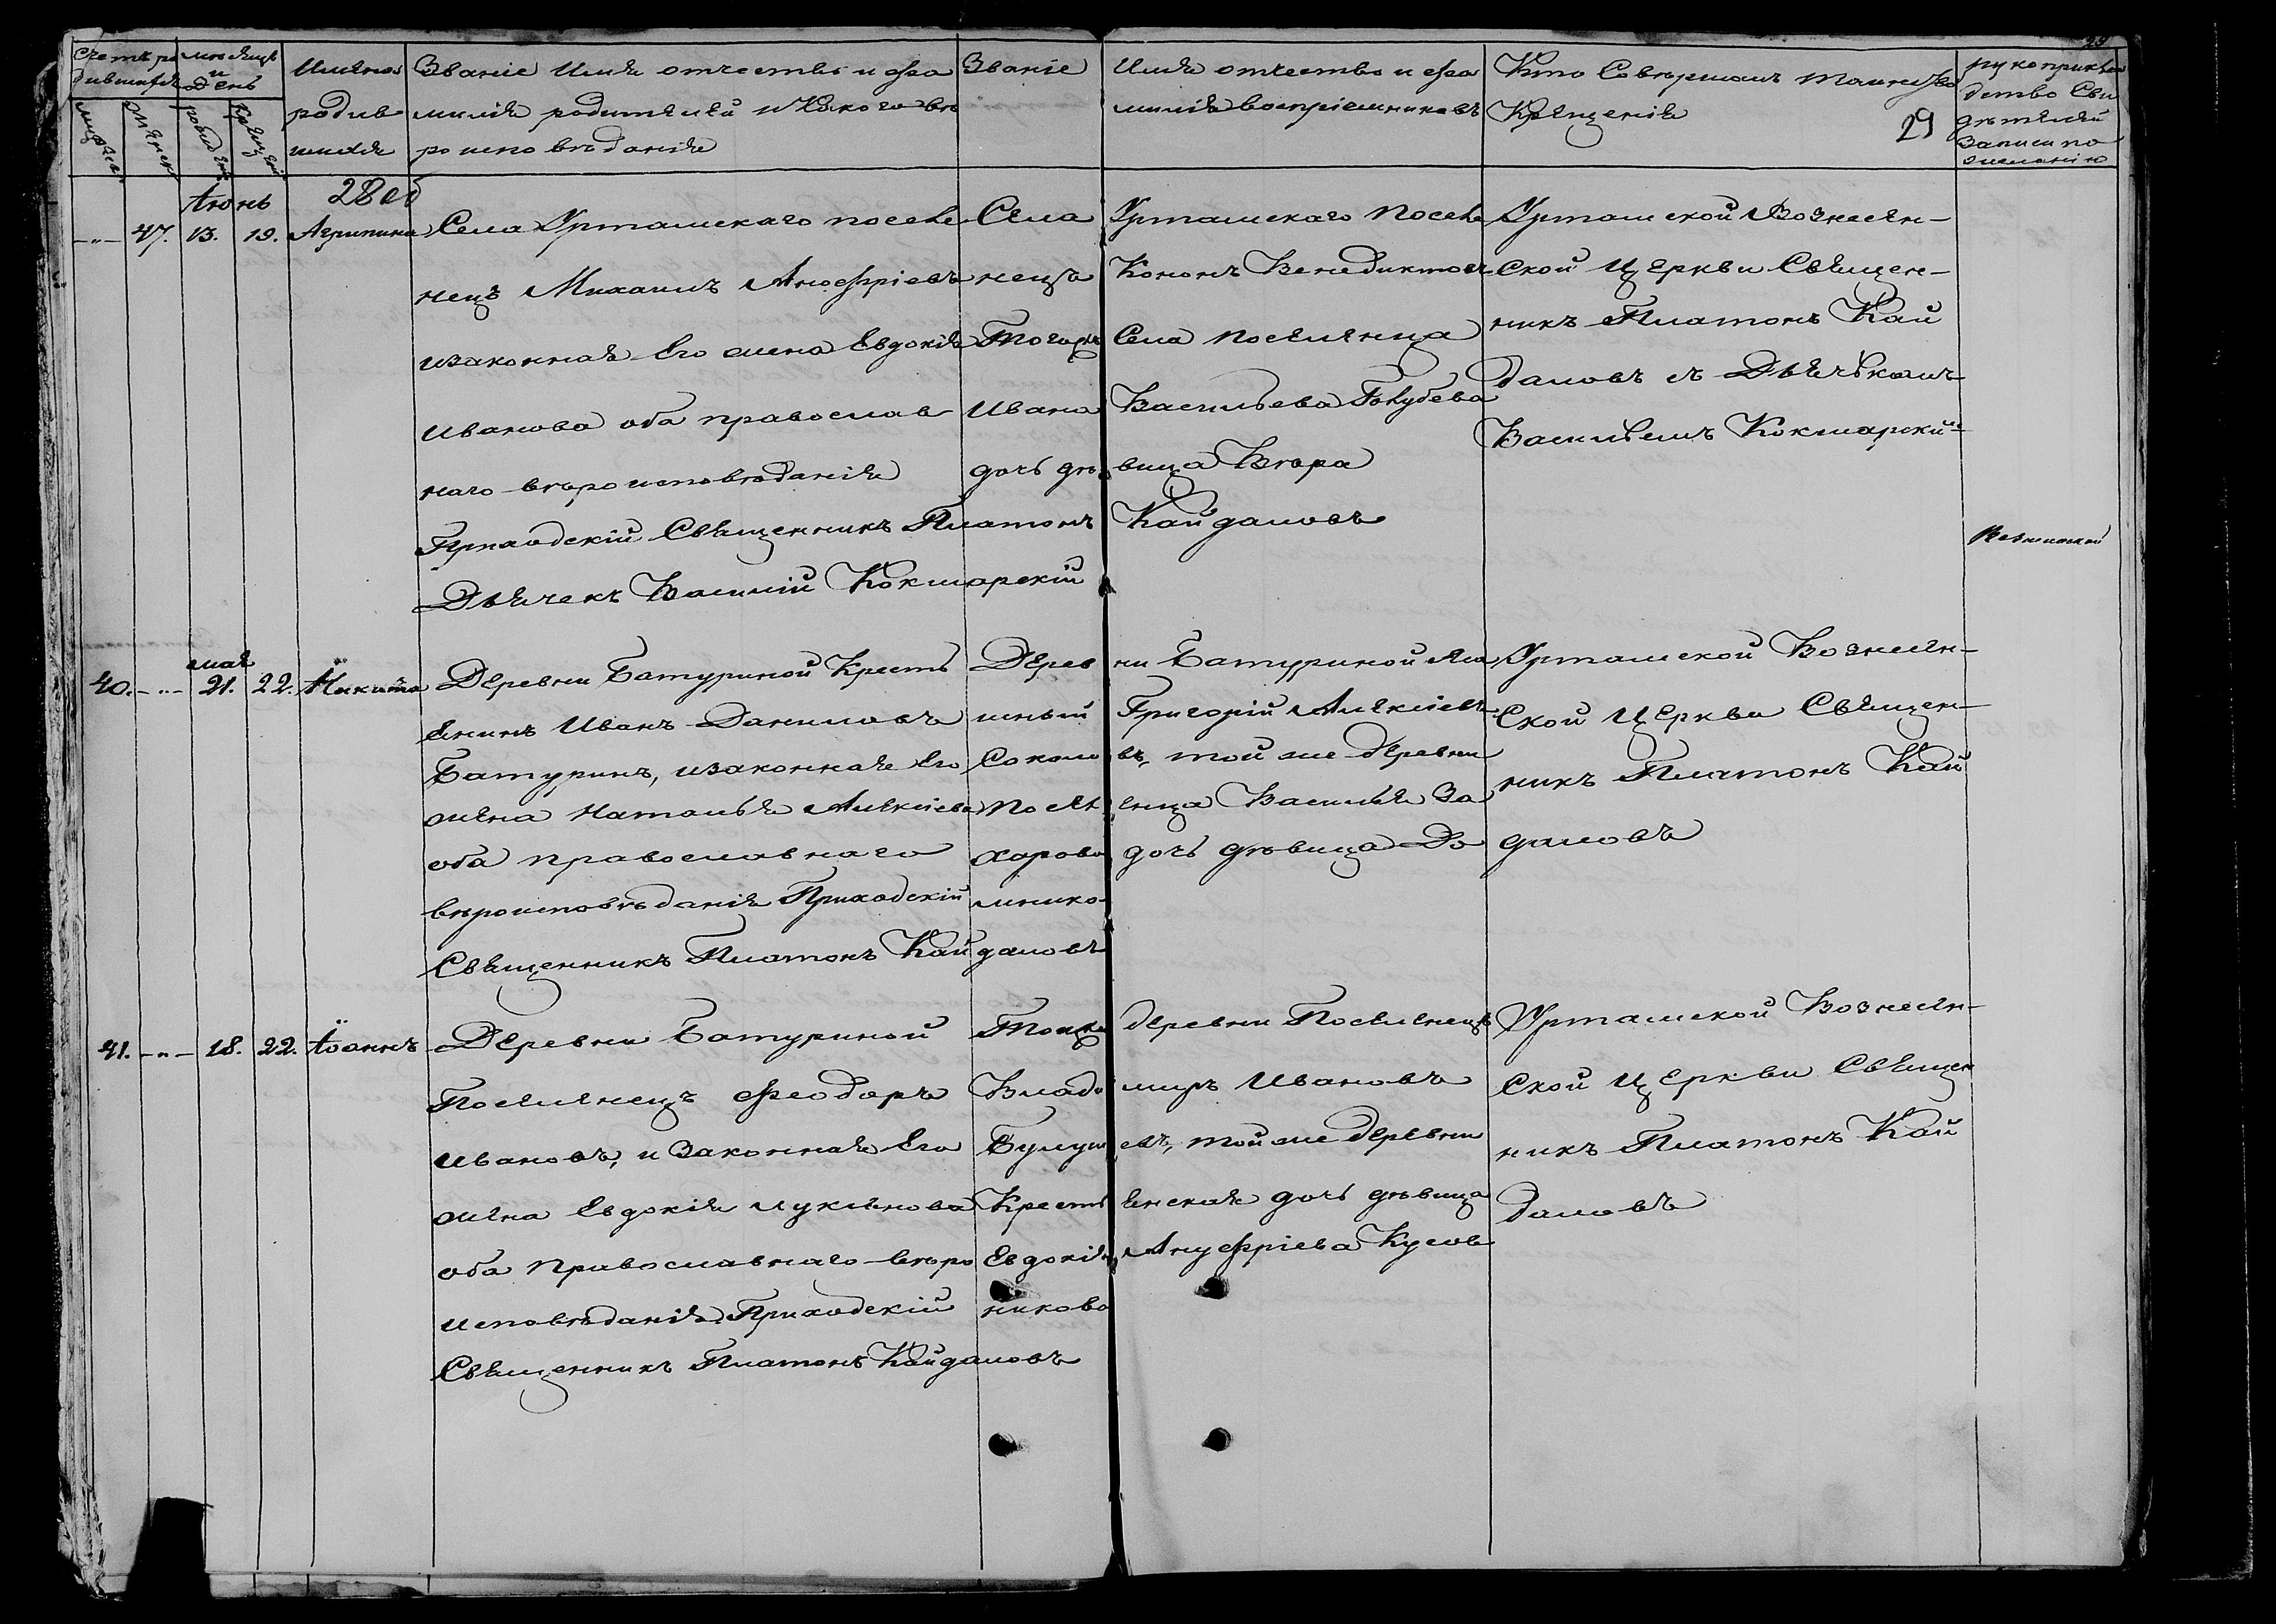 29
Счетъ ро
дившихся
мѣсяцъ
и
день
Имена
родив
шихся
Званіе Имя отчество и фа
милія родителей и какого вѣ
роисповѣданія
Званіе
Имя отчество и фа
милія воспріемниковъ
Кто Совершалъ таинство
Крещенія
29
рукоприклад
детво Сви
дѣтелей
записи по
желанію
Іюнь
28об
-"- 47. 13. 19. Агрипина
Села Уртамскаго поселе
нецъ Михаилъ Анофріевъ
изаконная Его жена Евдокія
Иванова оба православ
наго вѣроисповѣданія
Приходскій Священникъ Платонъ Кайдаловъ
Дьячекъ Василій Кокшарскій
Села Уртамскаго Поселе
нецъ Кононъ Венедиктовъ
Тогоже Села поселенца
Ивана Васильева Голубева
дочь дѣвица Вѣра
Уртамской Вознесен-
ской Церкви Священ-
никъ Платонъ Кай
даловъ съ Дьячькомъ
Васильемъ Кокшарски-
мая
40. -"- 21. 22. Никита
Деревни Батуриной Кресть
енинъ Иванъ Даниловъ
Батуринъ, изаконная Его
жена Наталья Алексіева
оба православнаго
вѣроисповѣданія Приходскій
Священникъ Платонъ Кайдаловъ
Дерев ни Батуриной
Григорій Алексіевъ
Соколо въ, той же деревни
Посел енца Василья За
харова дочь дѣвица До
мника
Уртамской Вознесен-
ской Церкви Священ-
никъ Платонъ Кай
даловъ
41. -"- 18. 22. Іоаннъ
Деревни Батуриной
Поселенецъ Феодоръ
Ивановъ, и законная Его
жена Евдокія Лукьянова
оба Православнаго вѣро
исповѣданія Приходскій
Священникъ Платонъ Кайдаловъ
Тойже деревни Поселенецъ
Влади миръ Ивановъ
евъ, той же деревни
Кресть енская дочь дѣвица
Евдокія Ануфріева Кусов
никова
Уртамской Вознесен-
ской Церкви Священ
никъ Платонъ Кай
даловъ